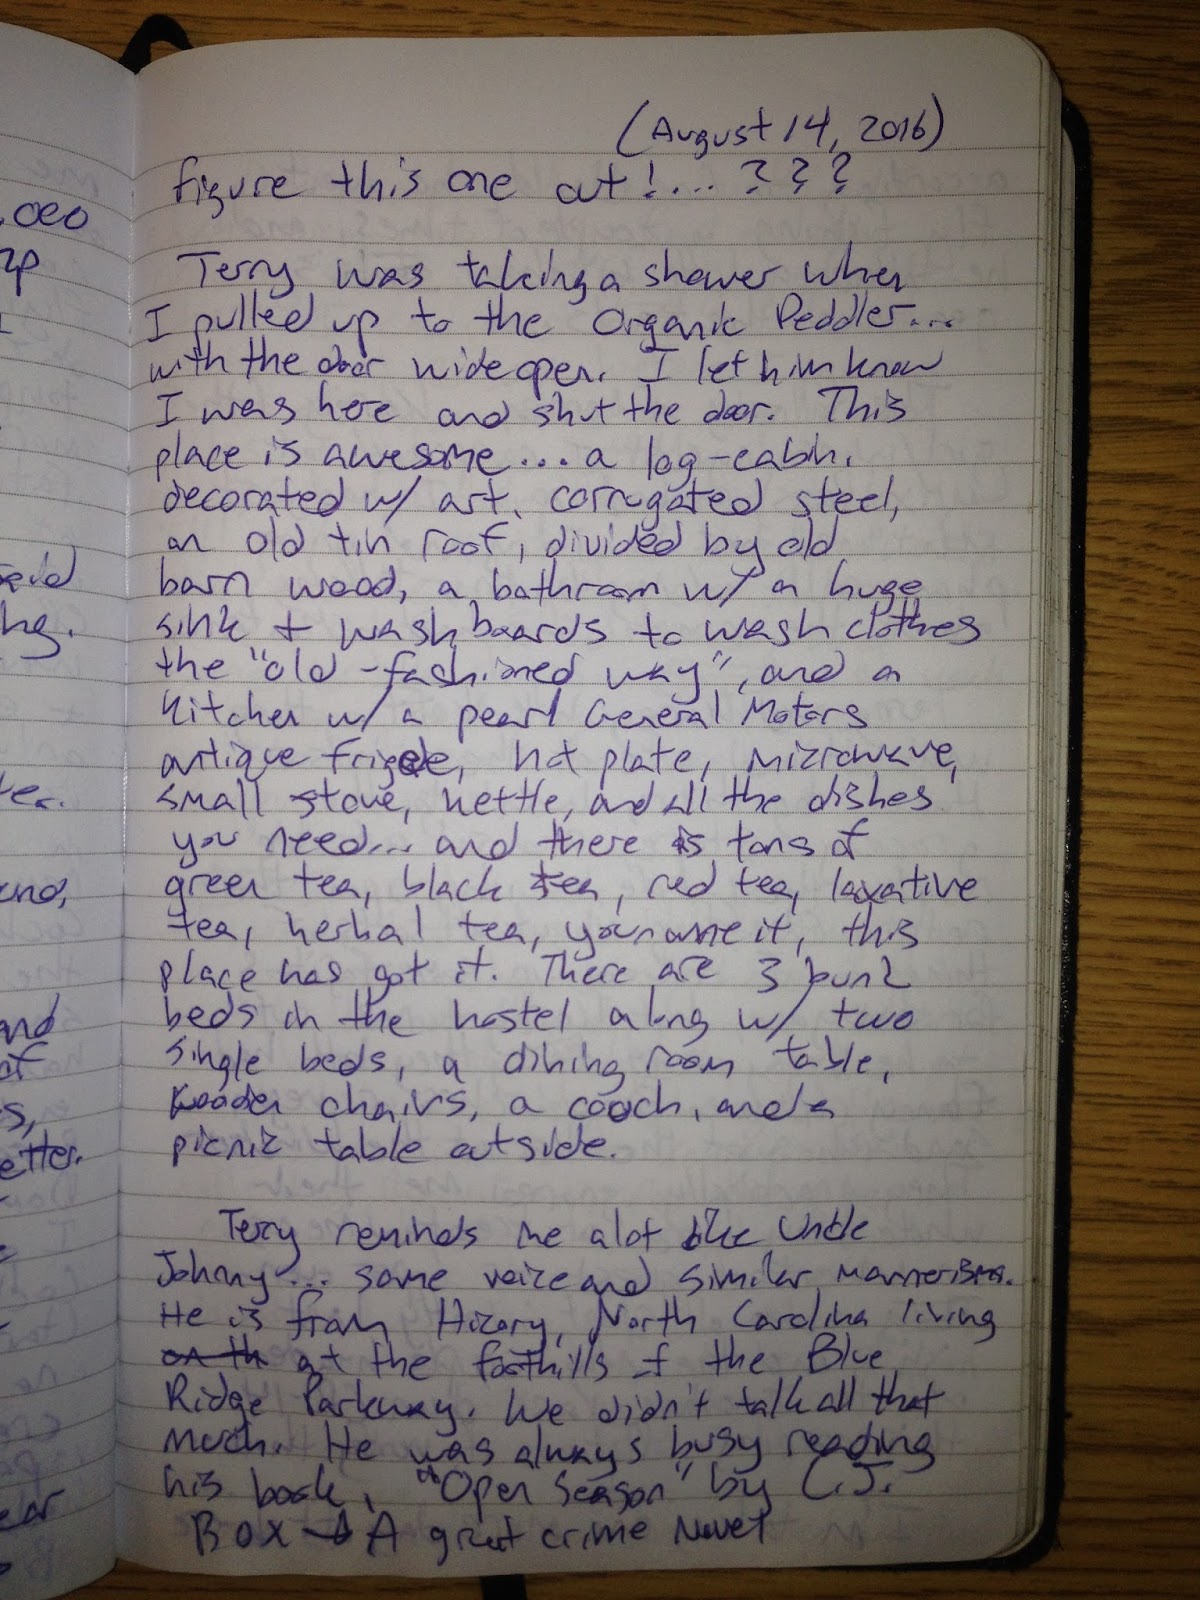 (August 14, 2016)
figure this one out!... ? ? ?
Terry was taking a shower when
I pulled up to the Organic Peddler...
with the door wide open. I let him know
I was here and shut the door. This
place is awesome... a log-cabin,
decorated w/ art, corrugated steel,
an old tin roof, divided by old
barn wood, a bathroom w/ a huge
sink + wash boards to wash clothes
the "old-fashioned way", and a
kitchen w/ a pearl General Motors
antique frigde, hot plate, microwave,
small stove, kettle, and all the dishes
you need... and there is tons of
green tea, black tea, red tea, laxative
tea, herbal tea, you name it, this
place has got it. There are 3 bunk
beds in the hostel along w/ two
single beds, a dining room table,
wooden chairs, a couch, and a
picnic table outside.
Terry reminds me alot like Uncle
Johnny... same voice and similar mannerisms.
He is from Hickory, North Carolina living
on th at the foothills of the Blue
Ridge Parkway. We didn't talk all that
much. He was always busy reading
his book, "Open Season" by C.J.
Box → A great crime Novel
.oeo
np
ng.
ter.
and,
and
of
s,
etter.
ear